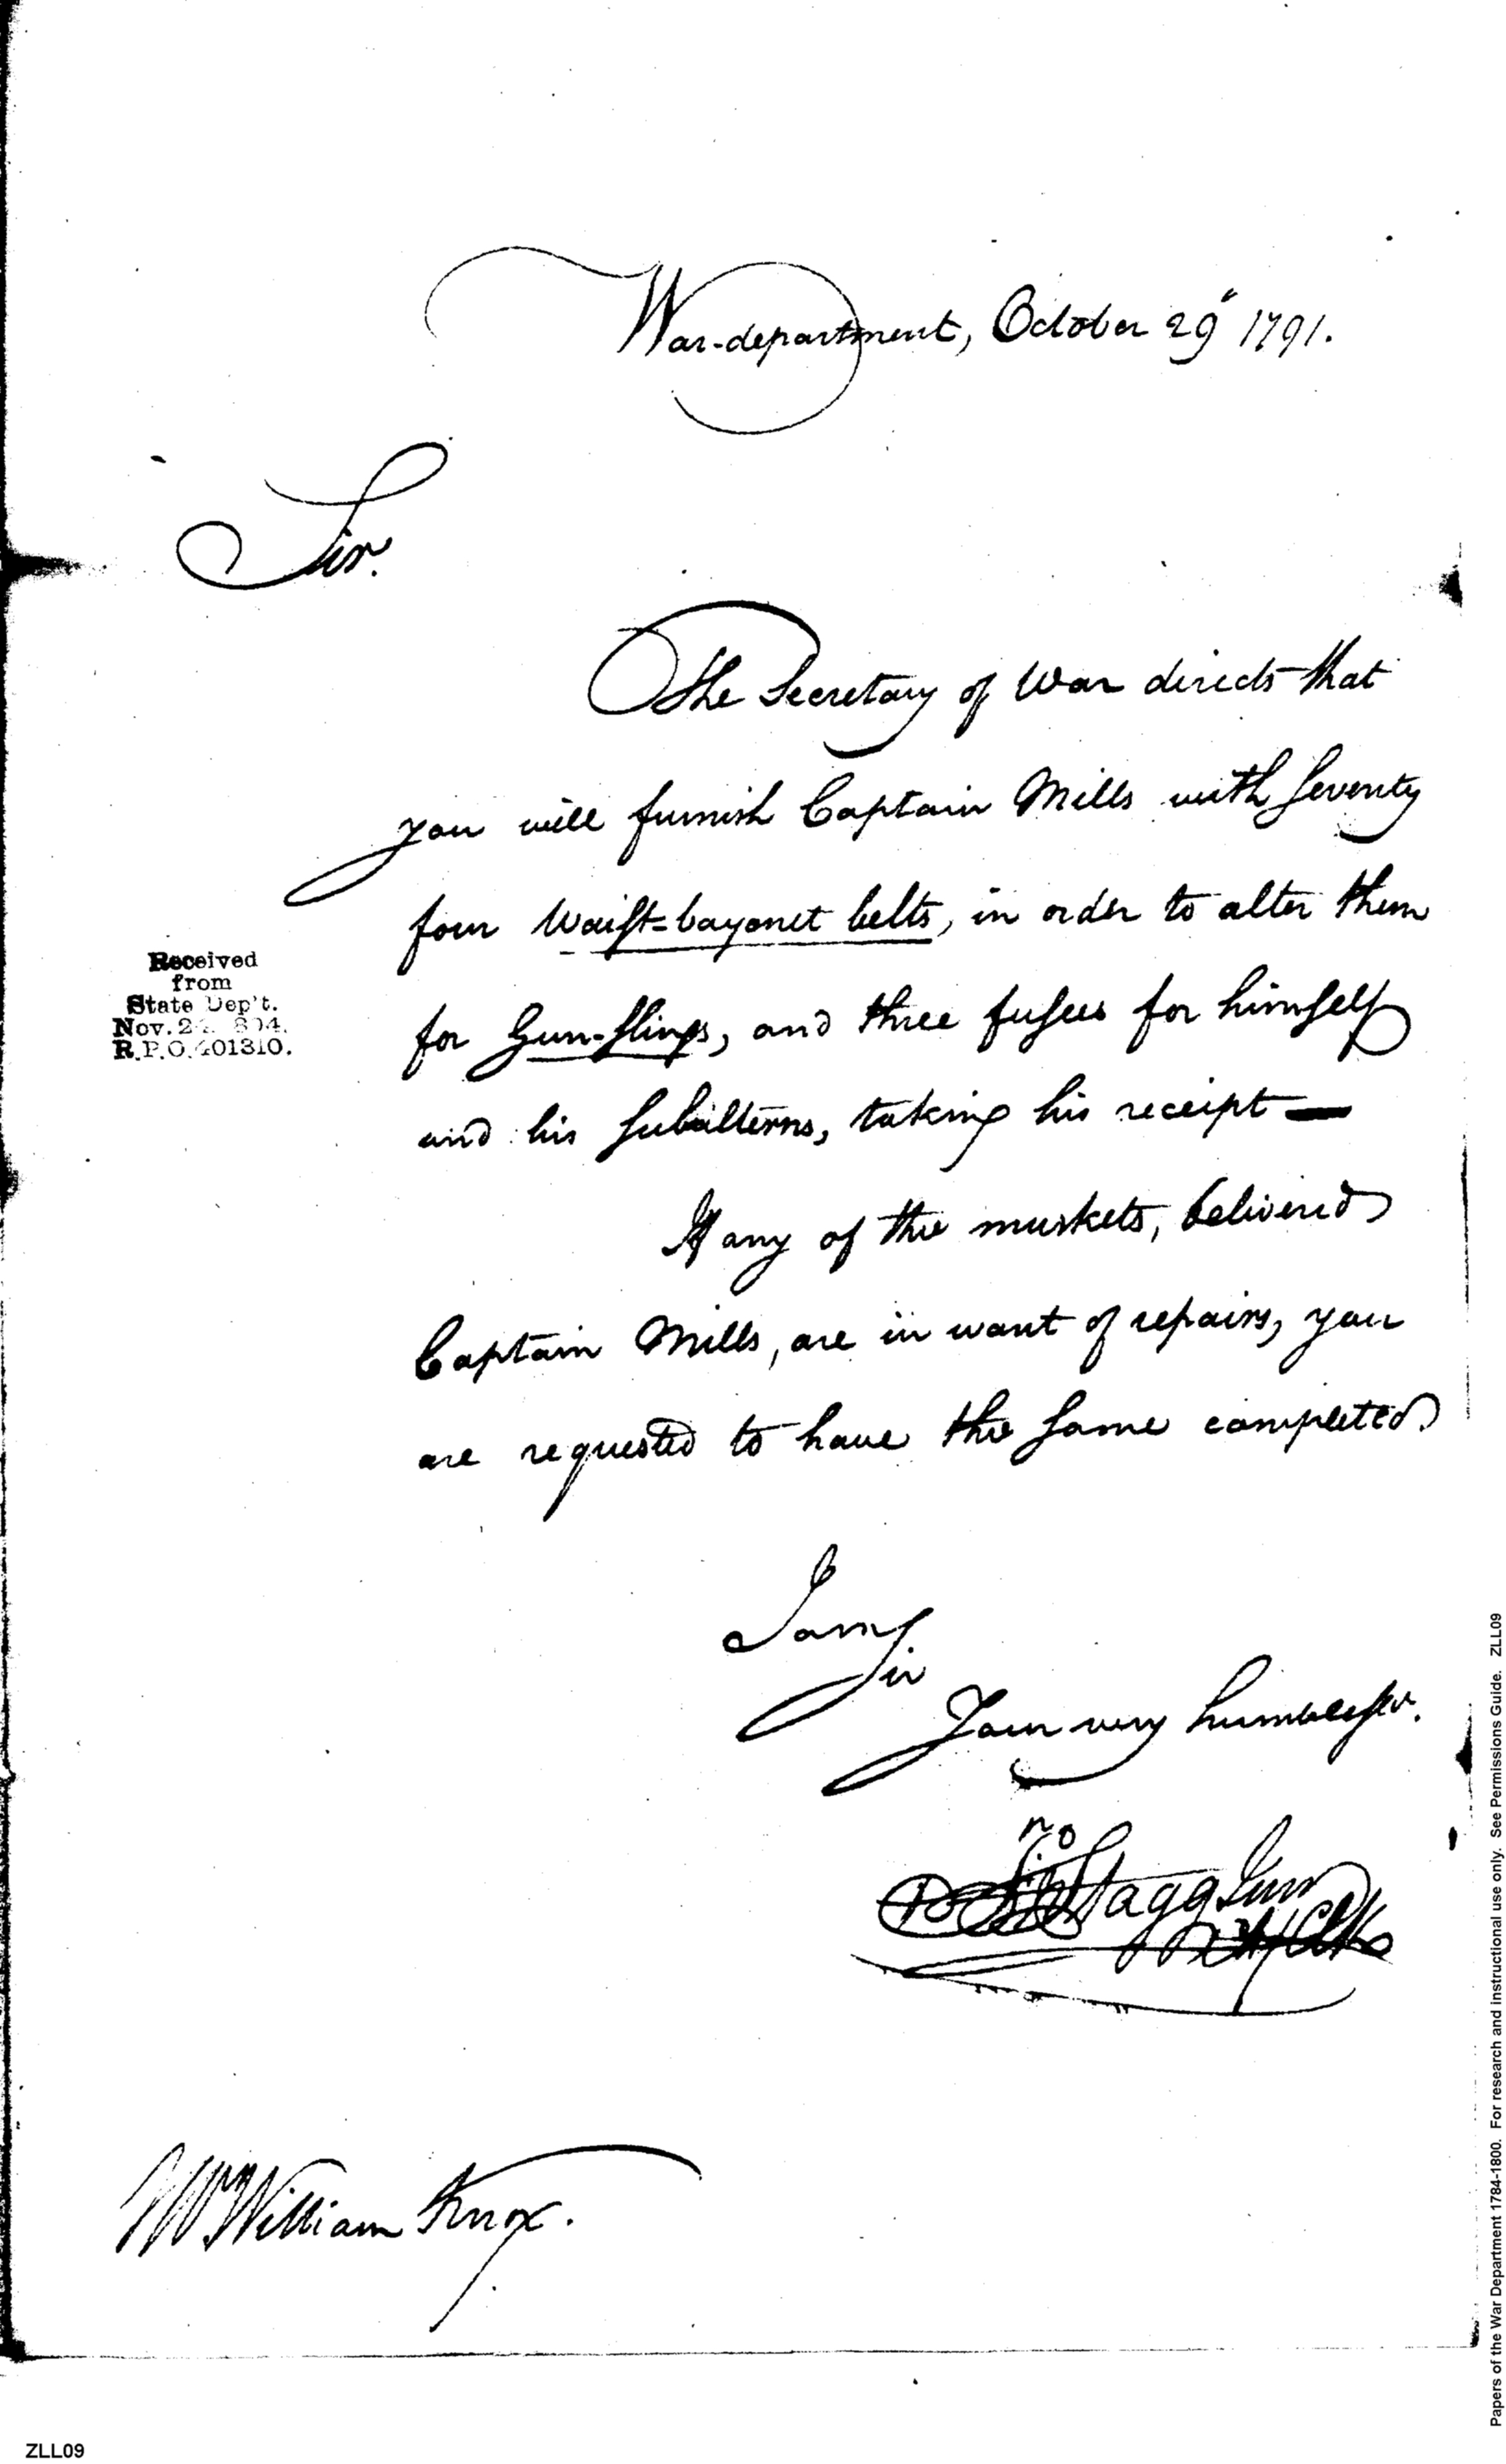 War-department, October 29" 1791.
Sir.
The Secretary of War directs that
you will furnish Captain Mills with seventy
four Waist=bayonet belts, in order to alter them
for Gun-slings, and three fusees for himself
and his subalterns, taking his receipt—
If any of the muskets, delivered
Captain Mills, are in want of repairs, you
are requested to have the same completed
I am
Sir
Your very humble Sev.
Jno Stagg Junr
Clk
Mr William Knox.
Received
from
State Dep't.
R.P.O. 401310.
Papers of the War Department 1784-1800. For research and instructional use only. See Permissions Guide. ZLL09
ZLL09